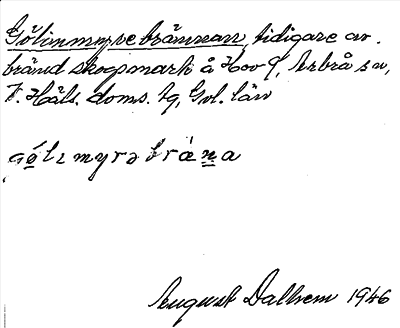 Gölinmyrebrännan, tidigare av-
bränd skogsmark å Hov 9, Arbrå sn,
V. Häls. doms. tg, Gvl. län
August Dalhem 1946